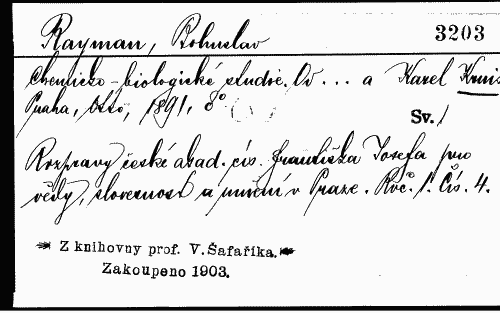 Rayman, Bohuslav 3203
Chemicko-biologické studie. Od ... a Karel Kruis
Praha, Otto, 1891, 8°
Sv. 1
Rozpravy české akad. cís. Františka Josefa pro
vědy, slovesnost a umění v Praze. Roč. 1. Čís. 4.
Z knihovny prof. V. Šafaříka.
Zakoupeno 1903.